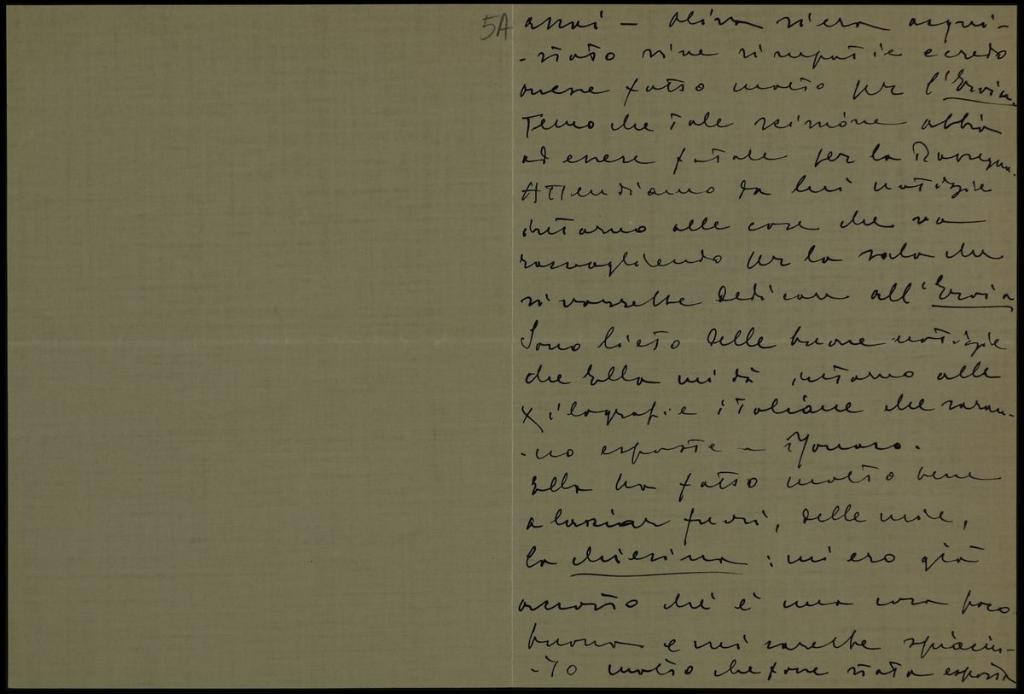 5A
assai – Oliva si era acqui-
-stato vive simpatie e credo
avesse fatto molto per l'Eroica.
Temo che tale scisione abbia
ad essere fatale per la Rassegna.
Attendiamo da lui notizie
intorno alle cose che va
racvogliendo per la sala che
si vorrebbe dedicare all'Eroica
Sono lieto delle buone notizie
che Ella mi dà intorno alle
xilografie italiane che saran-
-no esposte a
Ella ha fatto molto bene
a lasciar fuori, delle mie,
la chiesina: mi ero già
accorto che è una cosa poco
buona e mi sarebbe spiaciu-
-to molto che fosse stata esposta